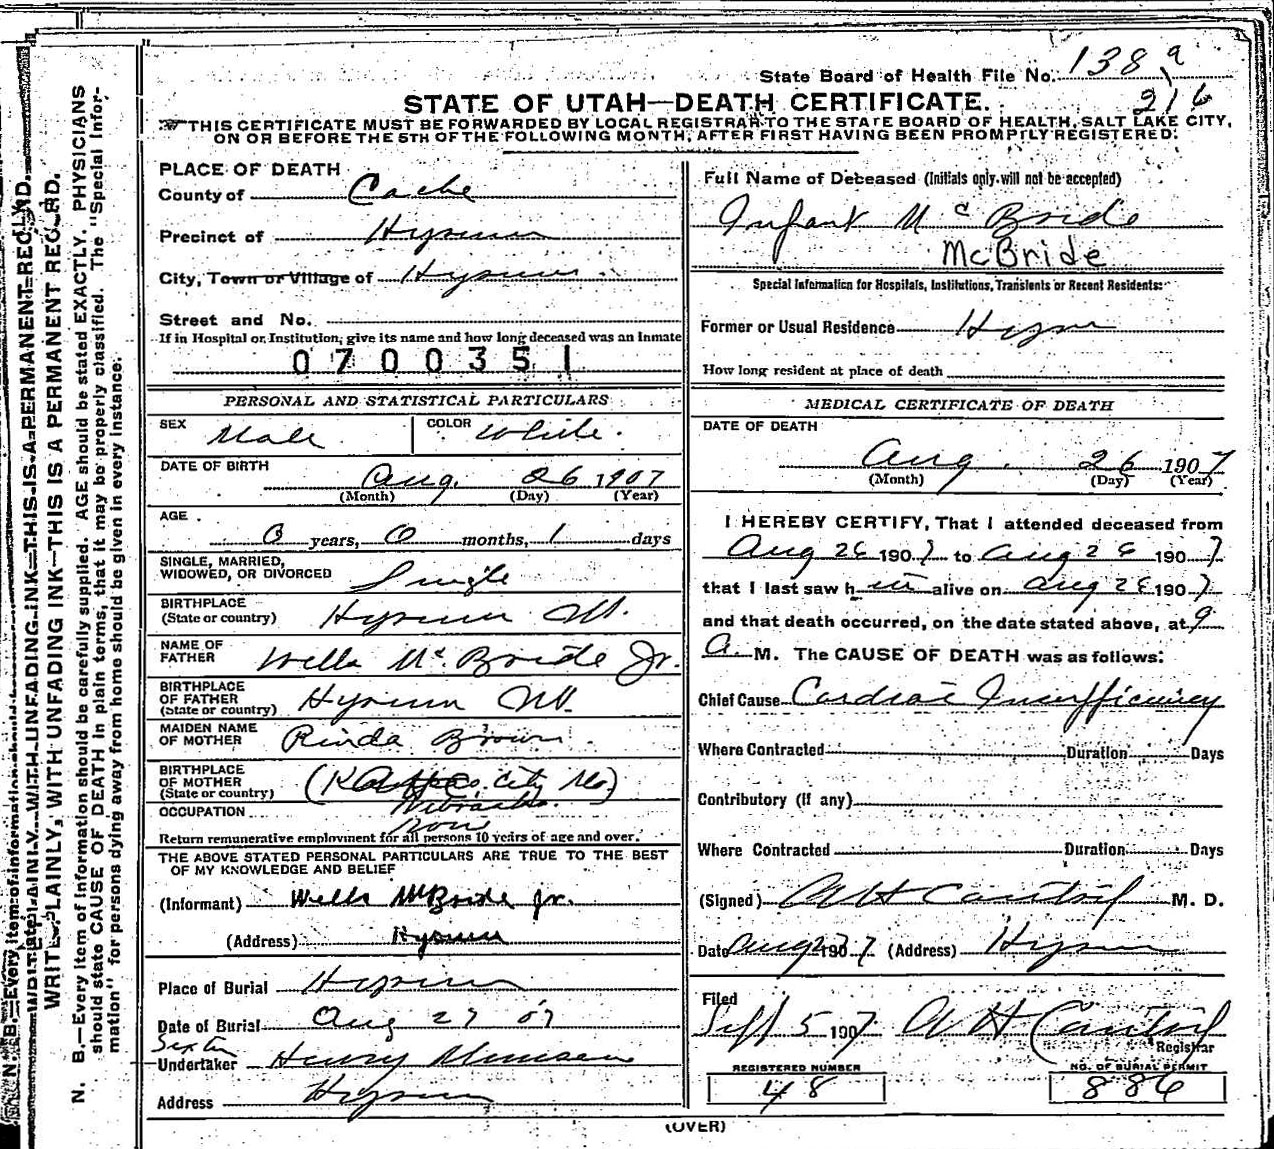 State Board of Health File No. 138 a
216
STATE OF UTAH—DEATH CERTIFICATE.
THIS CERTIFICATE MUST BE FORWARDED BY LOCAL REGISTRAR TO THE STATE BOARD OF HEALTH, SALT LAKE CITY,
ON OR BEFORE THE 5TH OF THE FOLLOWING MONTH, AFTER FIRST HAVING BEEN PROMPTLY REGISTERED.
PLACE OF DEATH
County of Cache
Precinct of Hyrum
City, Town or Village of Hyrum
Street and No.
If in Hospital or Institution, give its name and how long deceased was an Inmate
0700351
PERSONAL AND STATISTICAL PARTICULARS
SEX Male COLOR White.
DATE OF BIRTH Aug. 26 1907
(Month) (Day) (Year)
AGE 0 years, 0 months, 1 days
SINGLE, MARRIED,
WIDOWED, OR DIVORCED Single
BIRTHPLACE
(State or country) Hyrum Ut.
NAME OF
FATHER Wells Mc Bride Jr.
BIRTHPLACE
OF FATHER
(State or country) Hyrum Ut.
MAIDEN NAME
OF MOTHER Rinda Brown.
BIRTHPLACE
OF MOTHER
(State or country) (City Mo)
Nebraska.
OCCUPATION None
Return remunerative employment for all persons 10 years of age and over.
THE ABOVE STATED PERSONAL PARTICULARS ARE TRUE TO THE BEST
OF MY KNOWLEDGE AND BELIEF
(Informant) Wells McBride Jr.
(Address) Hyrum
Place of Burial Hyrum
Date of Burial Aug 27 07
Sexton
Undertaker Henry
Address Hyrum
Full Name of Deceased (Initials only will not be accepted)
Infant Mc Bride
McBride
Special Information for Hospitals, Institutions, Transients or Recent Residents:
Former or Usual Residence Hyrum
How long resident at place of death
MEDICAL CERTIFICATE OF DEATH
DATE OF DEATH
Aug. 26 1907
(Month) (Day) (Year)
I HEREBY CERTIFY, That I attended deceased from
Aug 26 1907 to Aug 26 1907
that I last saw him alive on Aug 26 1907
and that death occurred, on the date stated above, at 9
A. M. The CAUSE OF DEATH was as follows:
Chief Cause Cardiac Insufficiency
Where Contracted Duration Days
Contributory (if any)
Where Contracted Duration Days
(Signed) A H Cantril M. D.
Date Aug 27 1907 (Address) Hyrum
Filed
Sept 5 1907. A H Cantril
Registrar
REGISTERED NUMBER
48
NO. OF BURIAL PERMIT
886
(OVER)
WRITE PLAINLY, WITH UNFADING INK—THIS IS A PERMANENT RECORD.
N. B.—Every item of information should be carefully supplied. AGE should be stated EXACTLY. PHYSICIANS
should state CAUSE OF DEATH in plain terms, that it may be properly classified. The "Special Infor-
mation" for persons dying away from home should be given in every instance.